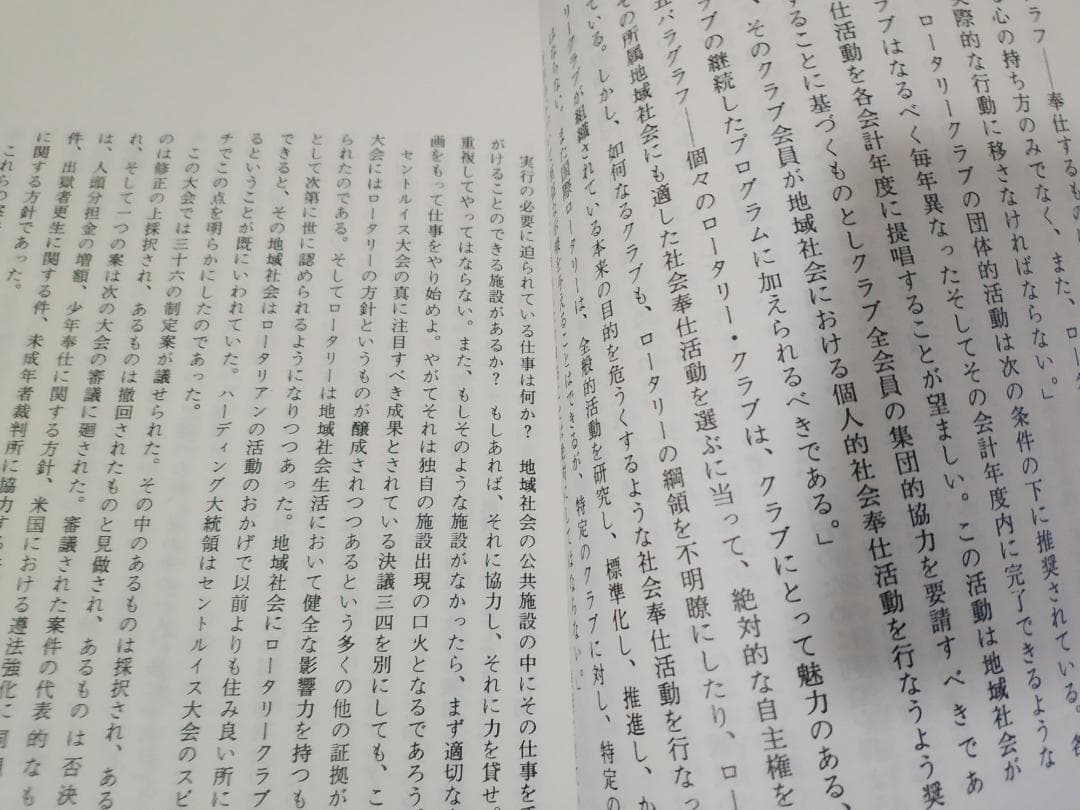 ラフ――奉仕するものに
心の持ち方のみでなく、また、ロータ
実際的な行動に移さなければならない。」
ロータリークラブの団体的活動は次の条件の下に推奨されている。各
クラブはなるべく毎年異なったそしてその会計年度内に完了できるような
仕活動を各会計年度に提唱することが望ましい。この活動は地域社会が
することに基づくものとしクラブ全会員の集団的協力を要請すべきであ
、そのクラブ会員が地域社会における個人的社会奉仕活動を行なうよう奨
ラブの継続したプログラムに加えられるべきである。」
五パラグラフ――個々のロータリー・クラブは、クラブにとって魅力のある、
その所属地域社会にも適した社会奉仕活動を選ぶに当って、絶対的な自主権を
ている。しかし、如何なるクラブも、ロータリーの綱領を不明瞭にしたり、ロー
リークラブが組織されている本来の目的を危うくするような社会奉仕活動を行なっ
はならない。また国際ロータリーは、全般的活動を研究し、標準化し、推進し、か
えることはできるが、特定のクラブに対し、特定の
してはならない。」
実行の必要に迫られている仕事は何か？　地域社会の公共施設の中にその仕事を手
がけることのできる施設があるか？　もしあれば、それに協力し、それに力を貸せ。
重複してやってはならない。また、もしそのような施設がなかったら、まず適切な
画をもって仕事をやり始めよ。やがてそれは独自の施設出現の口火となるであろう。
セントルイス大会の真に注目すべき成果とされている決議三四を別にしても、こ
大会にはロータリーの方針というものが醸成されつつあるという多くの他の証拠が
られたのである。そしてロータリーは地域社会生活において健全な影響力を持つも
として次第に世に認められるようになりつつあった。地域社会にロータリークラブ
できると、その地域社会はロータリアンの活動のおかげで以前よりも住み良い所に
るということが既にいわれていた。ハーディング大統領はセントルイス大会のスピ
チでこの点を明らかにしたのであった。
この大会では三十六の制定案が議せられた。その中のあるものは採択され、ある
のは修正の上採択され、あるものは撤回されたものと見做され、あるものは否決
れ、そして一つの案は次の大会の審議に廻された。審議された案件の代表的なも
は、人頭分担金の増額、少年奉仕に関する方針、米国における遵法強化に関
件、出獄者更生に関する件、未成年者裁判所に協力する
に関する方針であった。
これらの案